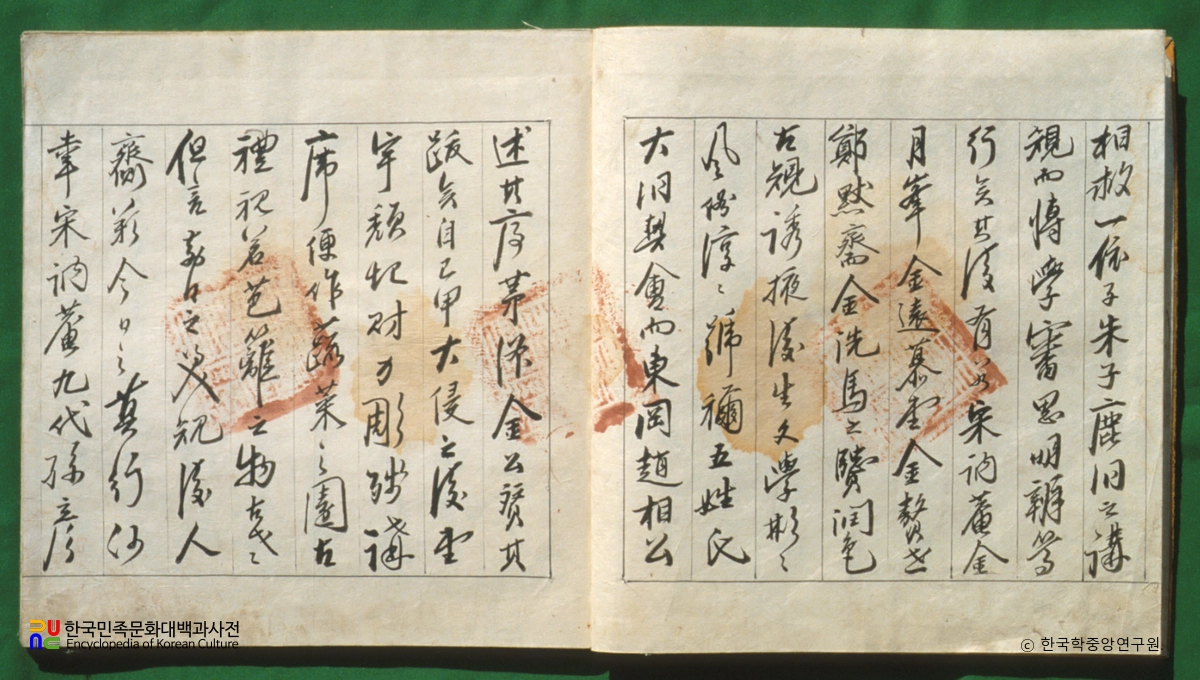 相救一依子朱子鹿洞之講
規而博學審思明辨篤
行矣其後有如宋訥菴金
月峯金遠慕堂金贅世
鄭默齋金洗馬之贊潤色
古規誘掖後生文學彬〻
風俗淳〻號稱五姓氏
大洞契會而東岡趙相公
述其序金公贇其
跋矣自己甲大侵之後堂
宇頹圮財力彫殘講
席便作蔬菜之園古
禮視若芭籬之物
但言前日之美規後人
今日之莫行
宋訥菴九代孫
한국민족문화대백과사전
Encyclopedia of Korean Culture
ⓒ 한국학중앙연구원